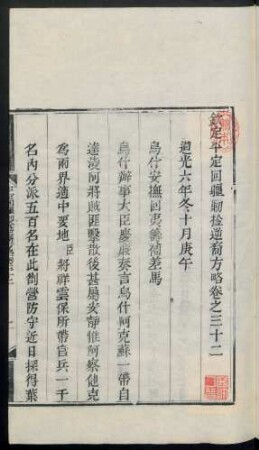 欽定平定回疆勦捡逆裔方略卷之三十二
道光六年冬十月庚午
烏什安撫回夷籌補差馬
烏什辦事大臣慶廉奏言烏什阿克蘇一帶自
達淩阿將賊匪擊散後甚屬安靜惟阿察他克
爲兩界適中要地臣將祥雲保所帶官兵一千
名內分派五百名在此劄營防守近日探得葉